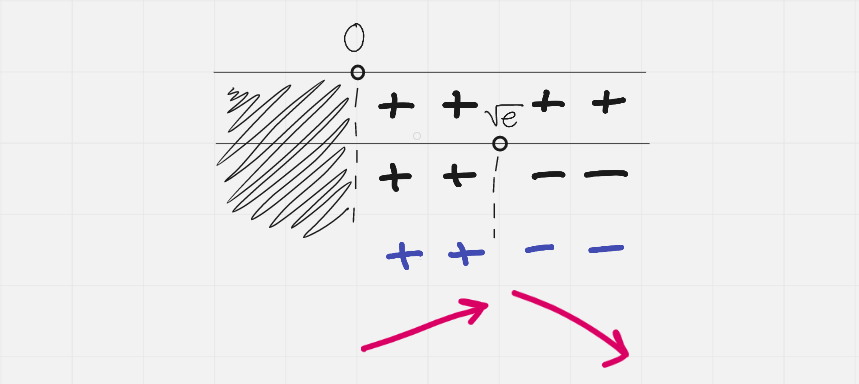 0
+ + √e + +
+ + − −
+ + − −